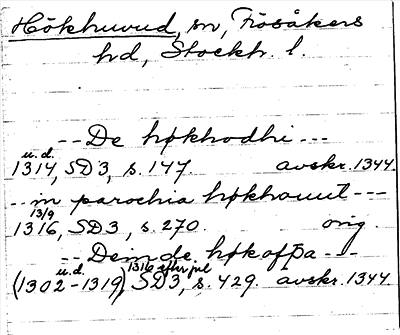 Hökhuvud, sn, Frösåkers
hd, Stockh. l.
-- De høkhodhi ---
u.d.
1314, SD3, s. 147. avskr. 1344.
-- in parochia høkhowut ---
13/9
1316, SD3, s. 270. orig.
-- Deinde. høkoffþa ---
u.d. 1316 efter jul
(1302-1319), SD3, s. 429. avskr. 1344